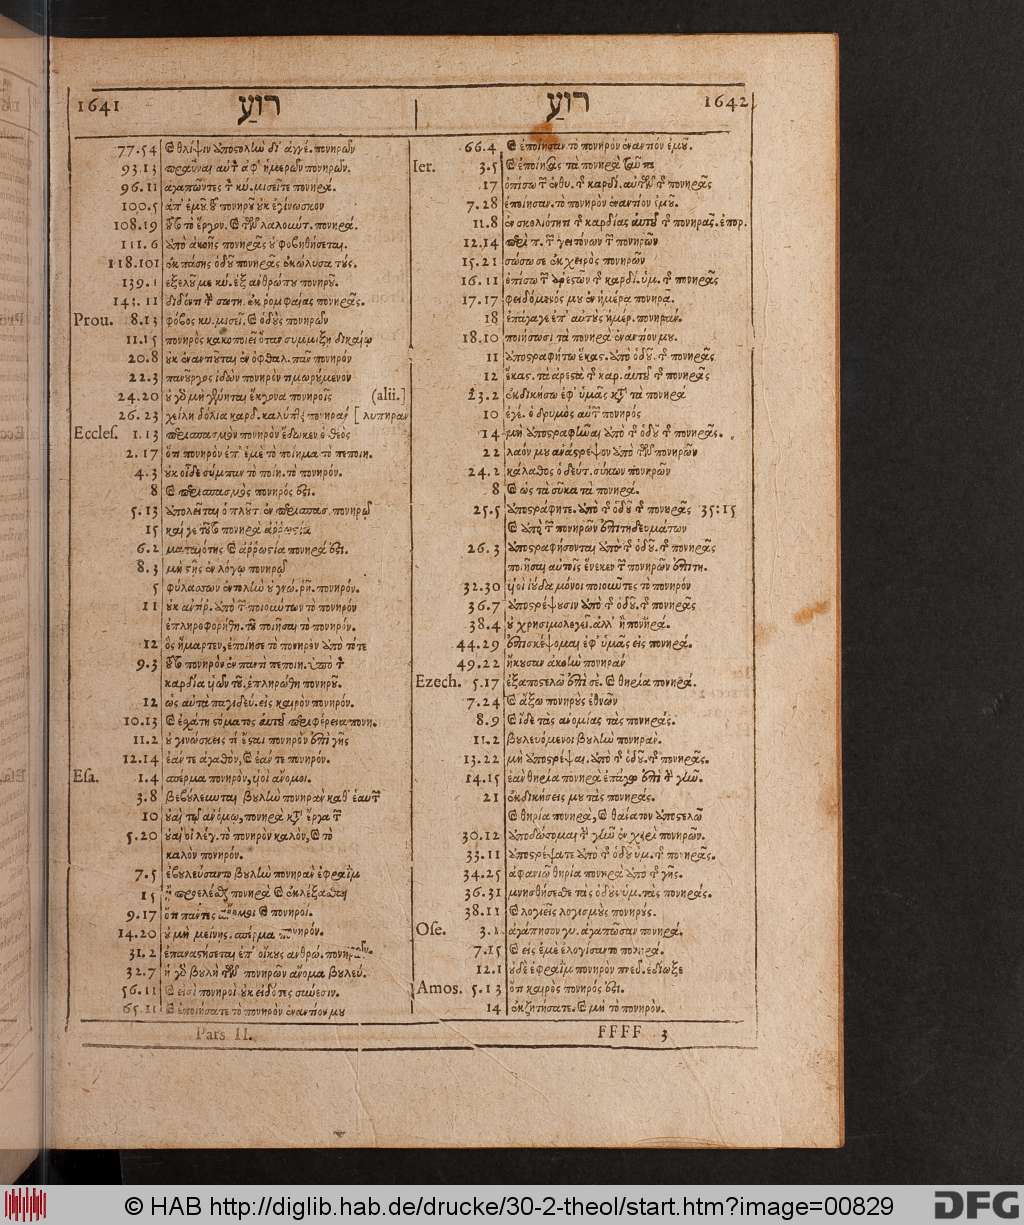 1641 רוַּע רוַּע 1642
77.54 καὶ θλίψιν ἀποστολὴν δι' ἀγγέ. πονηρῶν
93.13 πραῧναι αὐτῷ ἀφ' ἡμερῶν πονηρῶν.
96.11 ἀγαπῶντες τὸν κύ. μισεῖτε πονηρά.
100.5 ἀπ' ἐμοῦ τοῦ πονηροῦ οὐκ ἐγίνωσκον
108.19 τοῦτο τὸ ἔργον. καὶ τῶν λαλούντ. πονηρά.
111.6 ἀπὸ ἀκοῆς πονηρᾶς οὐ φοβηθήσεται.
118.101 ἐκ πάσης ὁδοῦ πονηρᾶς ἐκώλυσα τούς.
139.1 ἐξελοῦ με κύ. ἐξ ἀνθρώπου πονηροῦ.
11 διδόντι τὴν σωτη. ἐκ ῥομφαίας πονηρᾶς.
Prou. 8.13 φόβος κυ. μισεῖ. καὶ ὁδοὺς πονηρῶν
11.15 πονηρὸς κακοποιεῖ ὅταν συμμίξῃ δικαίῳ
20.8 οὐκ ἐναντιοῦται ἐν ὀφθαλ. πᾶν πονηρόν
22.3 πανοῦργος ἰδὼν πονηρὸν τιμωρούμενον
24.20 οὐ γὸ μὴ γένηται ἔκγονα πονηροῖς (alii.]
26.23 χείλη δόλια καρδ. καλύπτει πονηράν [ λυπηραν
Eccles. 1.13 περισπασμὸν πονηρὸν ἔδωκεν ὁ θεὸς
2.17 ὅτι πονηρὸν ἐπ' ἐμὲ τὸ ποίημα τὸ πεποιη.
4.3 οὐκ οἶδε σύμπαν τὸ ποίη. τὸ πονηρόν.
8 καὶ περισπασμὸς πονηρός ἐστι.
5.13 ἀπολεῖται ὁ πλουτ. ἐν περισπασ. πονηρῷ
15 καί γε τοῦτο πονηρὰ ἀῤῥωστία
6.2 ματαιότης καὶ ἀῤῥωστία πονηρά ἐστι.
8.3 μὴ στῇς ἐν λόγῳ πονηρῷ
5 φυλάσσων ἐντολὴν οὐ γνώ. ῥῆ. πονηρόν.
11 οὐκ ἀντίρ. ἀπὸ τῶν ποιούντων τὸ πονηρόν
ἐπληροφορήθη. τοῦ ποιῆσαι τὸ πονηρόν.
12 ὃς ἥμαρτεν, ἐποίησε τὸ πονηρὸν ἀπὸ τότε
9.3 τοῦτο πονηρὸν ἐν παντὶ πεποιη. ὑπὸ τὸν
καρδία υἱῶν τοῦ. ἐπληρώθη πονηροῦ.
12 ὡς αὐτὰ παγιδεύ. εἰς καιρὸν πονηρόν.
10.13 καὶ ἐσχάτη στόματος αὐτοῦ περιφέρεια πονη.
11.2 οὐ γινώσκεις τί ἔσται πονηρὸν ἐπὶ γῆς
12.14 ἐάν τε ἀγαθὸν, καὶ ἐάν τε πονηρόν.
Esa. 1.4 σπέρμα πονηρὸν, υἱοὶ ἄνομοι.
3.8 βεβούλευνται βουλὴν πονηρὰν καθ' ἑαυτῶν
10 οὐαὶ τῷ ἀνόμῳ, πονηρὰ κτ' ἔργα τῶν
5.20 οὐαὶ οἱ λέγ. τὸ πονηρὸν καλὸν, καὶ τὸ
καλὸν πονηρόν.
7.5 ἐβουλεύσαντο βουλὴν πονηρὰν ἐφραῒμ
15 ἢ προελέσθαι πονηρὰ καὶ ἐκλέξασθαι
9.17 ὅτι πάντες ἄνομοι καὶ πονηροί.
14.20 οὐ μὴ μείνῃς. σπέρμα πονηρόν.
31.2 ἐπαναστήσεται ἐπ' οἴκους ἀνθρώ. πονηρῶν.
32.7 ἡ γὸ βουλὴ τῶν πονηρῶν ἄνομα βουλεύ.
56.11 καὶ εἰσὶ πονηροὶ οὐκ εἰδότες σύνεσιν.
65.11 καὶ ἐποιήσατε τὸ πονηρὸν ἐναντίον μου
Pars II.
66.4 καὶ ἐποίησαν τὸ πονηρὸν ἐναντίον ἐμοῦ.
Ier. 3.5 καὶ ἐποίησας τὰ πονηρὰ ταῦτα
17 ὀπίσω τῶν ἐνθυ. τῆς καρδί. αὐτῶν τῆς πονηρᾶς
7.28 ἐποίησαν. τὸ πονηρὸν ἐναντίον ἐμοῦ.
11.8 ἐν σκολιότητι τῆς καρδίας αὐτοῦ τῆς πονηρᾶς. ἐπορ.
12.14 περὶ π. τῶν γειτόνων τῶν πονηρῶν
15.21 σώσω σε ἐκ χειρὸς πονηρῶν
16.11 ὀπίσω τῶν ἀρεστῶν τῆς καρδί. ὑμ. τῆς πονηρᾶς
17.17 φειδόμενός μου ἐν ἡμέρᾳ πονηρᾷ.
18 ἐπάγαγε ἐπ' αὐτοὺς ἡμέρ. πονηράν.
18.10 ποιήσωσι τὰ πονηρὰ ἐναντίον μου.
11 ἀποστραφήτω ἕκας. ἀπὸ ὁδοῦ. τῆς πονηρᾶς
12 ἕκας. τὰ ἀρεστὰ τῆς καρ. αὐτοῦ τῆς πονηρᾶς
23.2 ἐκδικήσω ἐφ' ὑμᾶς κτ' τὰ πονηρά
10 ἐγέ. ὁ δρόμος αὐτῶν πονηρός
14 μὴ ἀποστραφῆναι ἀπὸ τῆς ὁδοῦ τῆς πονηρᾶς.
22 λαόν μου ἀνάστρεψον ἀπὸ τῶν πονηρῶν
24.2 κάλαθος ὁ δεύτ. σύκων πονηρῶν
8 καὶ ὡς τὰ σῦκα τὰ πονηρά.
25.5 ἀποστράφητε. ἀπὸ τῆς ὁδοῦ τῆς πονηρᾶς 35:15
καὶ ἀπὸ τῶν πονηρῶν ἐπιτηδευμάτων
26.3 ἀποστραφήσονται ἀπὸ τῆς ὁδοῦ. τῆς πονηρᾶς
ποιῆσαι αὐτοῖς ἕνεκεν τῶν πονηρῶν ἐπιτη.
32.30 υἱοὶ ἰούδα μόνοι ποιοῦντες τὸ πονηρόν
36.7 ἀποστρέψουσιν ἀπὸ τῆς ὁδοῦ. τῆς πονηρᾶς
38.4 οὐ χρησμολογεῖ. ἀλλ' ἢ πονηρά.
44.29 ἐπισκέψομαι ἐφ' ὑμᾶς εἰς πονηρά.
49.22 ἤκουσαν ἀκοὴν πονηράν
Ezech. 5.17 ἐξαποστελῶ ἐπὶ σέ. καὶ θηρία πονηρά.
7.24 καὶ ἄξω πονηροὺς ἐθνῶν
8.9 καὶ ἴδε τὰς ἀνομίας τὰς πονηράς.
11.2 βουλευόμενοι βουλὴν πονηράν.
13.22 μὴ ἀποστρέψαι. ἀπὸ τῆς ὁδοῦ. τῆς πονηρᾶς.
14.15 ἐὰν θηρία πονηρὰ ἐπάγω ἐπὶ τὴν γῆν.
21 ἐκδικήσεις μου τὰς πονηράς.
καὶ θηρία πονηρὰ, καὶ θάνατον ἀποστελῶ
30.12 ἀποδώσομαι τὴν γῆν ἐν χερσὶ πονηρῶν.
33.11 ἀποστρέψατε ἀπὸ τῆς ὁδοῦ ὑμ. τῆς πονηρᾶς.
34.25 ἀφανιῶ θηρία πονηρὰ ἀπὸ τῆς γῆς.
36.31 μνησθήσεσθε τὰς ὁδοὺς ὑμ. τὰς πονηράς.
38.11 καὶ λογιεῖς λογισμοὺς πονηρούς.
Ose. 3.1 ἀγάπησον γυ. ἀγαπῶσαν πονηρά.
7.15 καὶ εἰς ἐμὲ ἐλογίσαντο πονηρά.
12.1 ὁ δὲ ἐφραῒμ πονηρὸν πνεῦ. ἐδίωξε
Amos. 5.13 ὅτι καιρὸς πονηρός ἐστι.
14 ἐκζητήσατε. καὶ μὴ τὸ πονηρόν.
FFFF 3
© HAB http://diglib.hab.de/drucke/30-2-theol/start.htm?image=00829 DFG